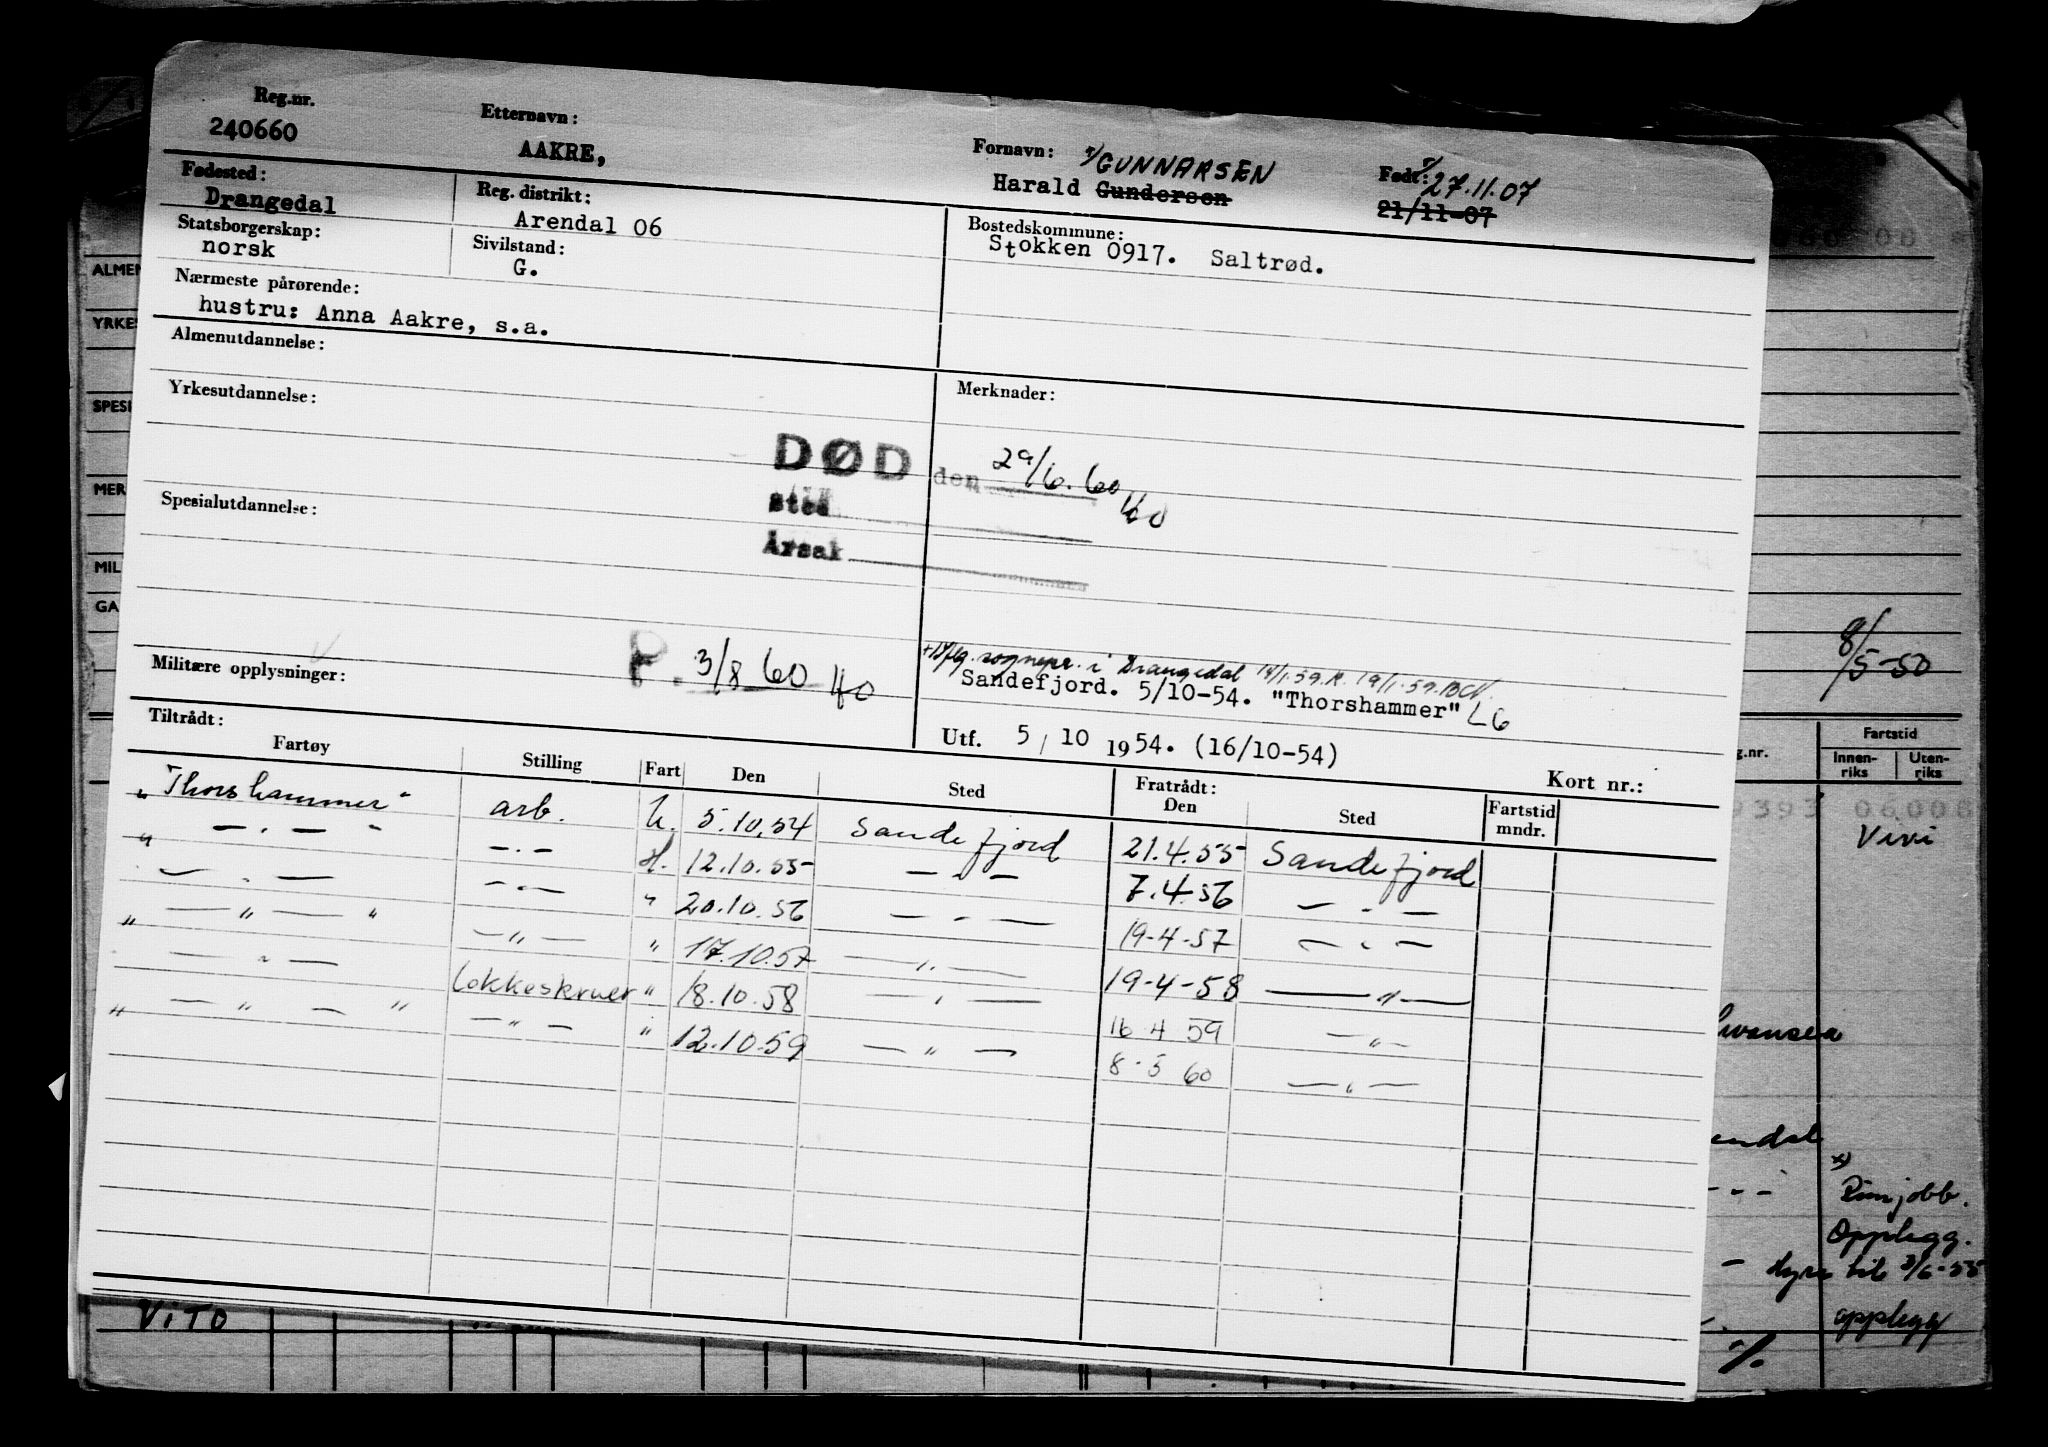 Reg.nr. Etternavn: Fornavn: Født:
240660 AAKRE, Harald Gundersen x/ GUNNARSEN 21/11-07 x/ 27.11.07
Fødested: Reg. distrikt: Bostedskommune:
Drangedal Arendal 06 Stokken 0917. Saltrød.
Statsborgerskap: Sivilstand:
norsk G.
Nærmeste pårørende:
hustru: Anna Aakre, s.a.
Almenutdannelse:
Yrkesutdannelse: Merknader:
DØD den 29/6.60
sted
Årsak
Spesialutdannelse:
Militære opplysninger: 3/8 60
sognepr. i Drangedal 14/1.59.R. 19/1.59.
Sandefjord. 5/10-54. "Thorshammer" LG
Utf. 5/10 1954. (16/10-54)
Tiltrådt: Fratrådt: Kort nr.:
Fartøy Stilling Fart Den Sted Den Sted Fartstid mndr.
"Thorshammer" arb. U. 5.10.54 Sandefjord 21.4.55 Sandefjord
" — . — " — . — H. 12.10.55 — " — 7.4.56 — . —
— . — — . — " 20.10.56 — . — 19-4-57 — " —
" — " — " — " — " 17.10.57 — " — 19-4-58 — " —
— " — Lokkeskruer " 18.10.58 — " — 16 4 59 — " —
" — " — " — " — " 12.10.59 — " — 8-5 60 — " —
ALMEN
YRKES
SPESI
MER
MIL
GA
8/5-50
g.nr. Fartstid
Innen-riks Uten-riks
9393 06006
Vivi
Swansea
endal
x)
— " — Rimjobb.
Opplegg.
— hyre til 3/6-55
opplegg
ViTO